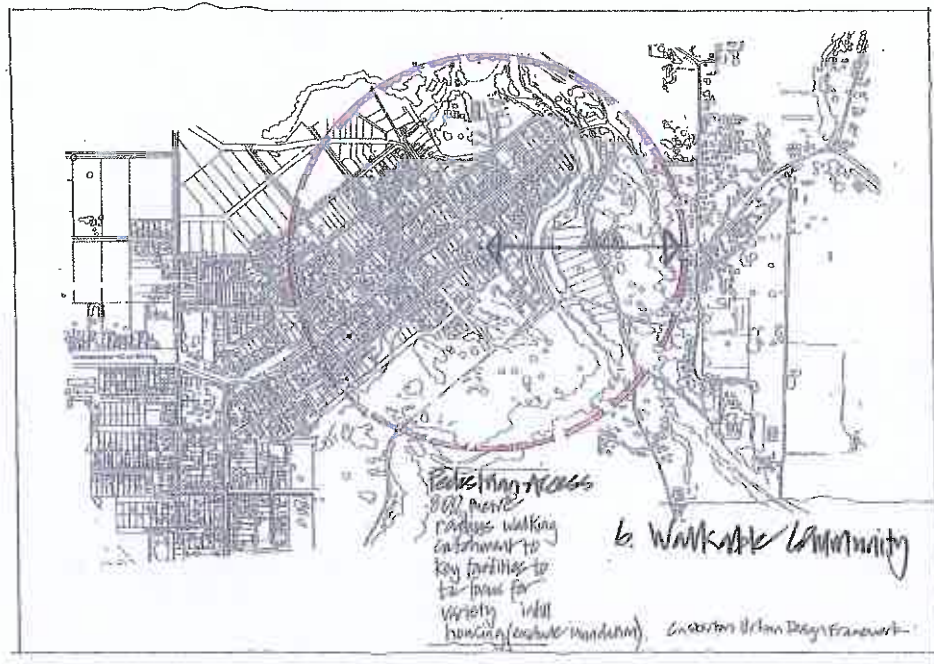 Pedestrian Access
800 metre
radius walking
catchment to
key facilities to
be focus for
variety infill
housing (exclude inundation)
6. Walkable Community
Casterton Urban Design Framework